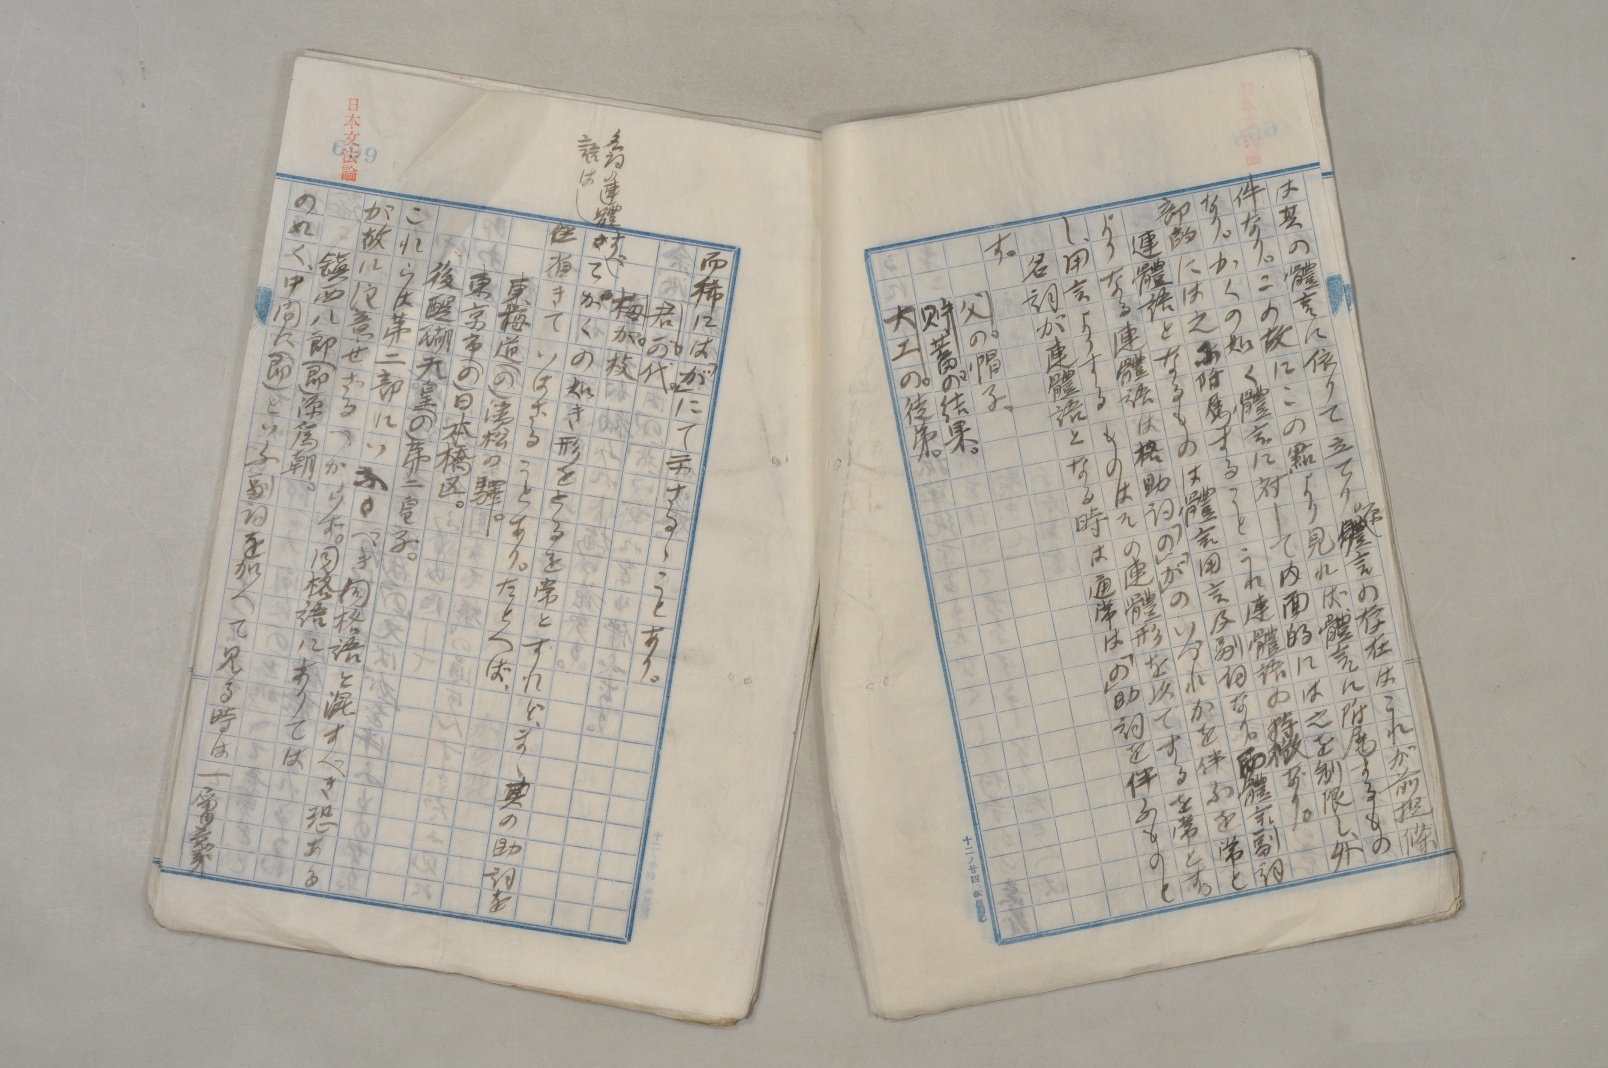 は其の體言に依りて立てり。體言の存在はこれが前提條
件なり。この故にこの點より見れば體言に附屬するもの
なり。かくの如く體言に對して内面的には之を制限し、外
部的には之に附屬することこれ連體語の特徴なり。
連體語となるものは體言用言及副詞なり。即體言副詞
よりなる連體語は格助詞「の」「が」のいづれかを伴ふを常と
し、用言よりするものはその連體形を以てするを常とす。
名詞が連體語となる時は通常は「の」助詞を伴ふものと
す。
父の帽子。
貯蓄の結果。
大工の徒弟。
十二ノ廿四
日本文法論
699
而稀には「が」にて示さるゝことあり。
君が代。
梅が枝
名詞連體
語は
てかくの如き形をとるを常とすれど、まゝ其の助詞を
省きていはざることあり。たとへば、
東海道(の)濱松の驛。
東京市(の)日本橋区。
後醍醐天皇(の)第二皇子。
これらは第二部にいふべき同格語と混すべき恐ある
が故に注意せざるべからず。同格語にありては
鎮西八郎(即)源爲朝。
の如く、中間に(即)といふ副詞を加へて見る時は一層